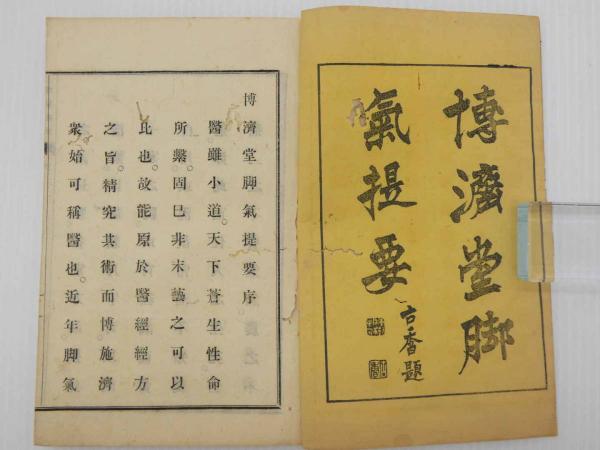 博濟堂脚
氣提要
古香題
博濟堂脚氣提要序
醫雖小道。天下蒼生性命
所繫。固已非末藝之可以
比也。故能原於醫經經方
之旨。精究其術而博施濟
衆。始可稱醫也。近年脚氣